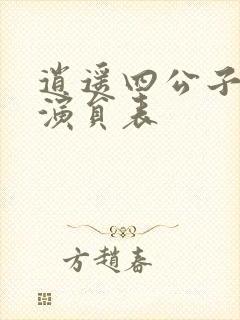 逍遥四公子
演员表
方趙春